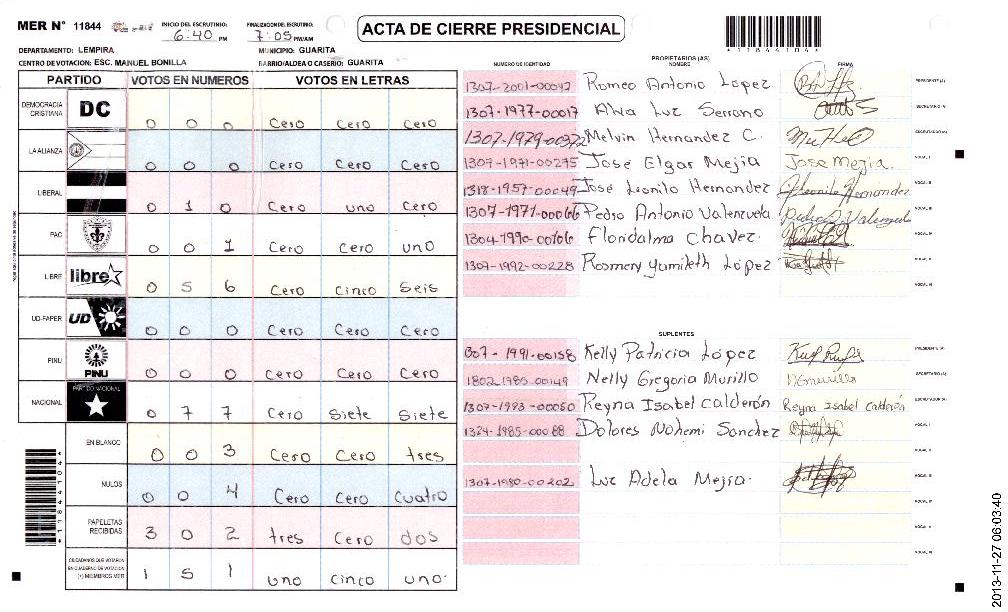 MER N° 11844
INICIO DEL ESCRUTINIO: 6:40 PM
FINALIZACION DEL ESCRUTINIO: 7:05 PM/AM
ACTA DE CIERRE PRESIDENCIAL
*11844104*
DEPARTAMENTO: LEMPIRA MUNICIPIO: GUARITA
CENTRO DE VOTACION: ESC. MANUEL BONILLA BARRIO/ALDEA O CASERIO: GUARITA
PARTIDO VOTOS EN NUMEROS VOTOS EN LETRAS
DEMOCRACIA CRISTIANA DC 0 0 0 Cero Cero Cero
LA ALIANZA 0 0 0 Cero Cero Cero
LIBERAL 0 1 0 Cero uno Cero
PAC 0 0 1 Cero Cero uno
LIBRE libre 0 5 6 Cero Cinco Seis
UD-FAPER UD 0 0 0 Cero Cero Cero
PINU PINU 0 0 0 Cero Cero Cero
NACIONAL PARTIDO NACIONAL 0 7 7 Cero Siete Siete
EN BLANCO 0 0 3 Cero Cero tres
NULOS 0 0 4 Cero Cero Cuatro
PAPELETAS RECIBIDAS 3 0 2 tres Cero dos
CIUDADANOS QUE VOTARON EN CUADERNO DE VOTACION (+) MIEMBROS MER 1 5 1 uno cinco uno.
PROPIETARIOS (AS)
NUMERO DE IDENTIDAD NOMBRE FIRMA
1307-2001-00047 Romeo Antonio López PRESIDENTE (A)
1307-1977-00017 Alva Luz Serrano SECRETARIO (A)
1307-1979-00372 Melvin Hernandez C. ESCRUTADOR (A)
1307-1971-00275 Jose Elgar Mejia Jose Mejia. VOCAL I
1318-1957-00049 José Leonilo Hernandez Leonilo Hernandez VOCAL II
1307-1971-00066 Pedro Antonio Valenzuela VOCAL III
1304-1990-00106 Floridalma Chavez. VOCAL IV
1307-1992-00228 Rosmery Yamileth López VOCAL V
VOCAL VI
SUPLENTES
1307-1991-00158 Kelly Patricia López PRESIDENTE (A)
1802-1985-00149 Nelly Gregoria Murillo SECRETARIO (A)
1307-1993-00050 Reyna Isabel Calderón Reyna Isabel Calderón ESCRUTADOR (A)
1324-1985-00088 Dolores Nohemi Sanchez VOCAL I
VOCAL II
1307-1980-00202 Luz Adela Mejia. VOCAL III
VOCAL IV
VOCAL V
VOCAL VI
2013-11-27 06:03:40